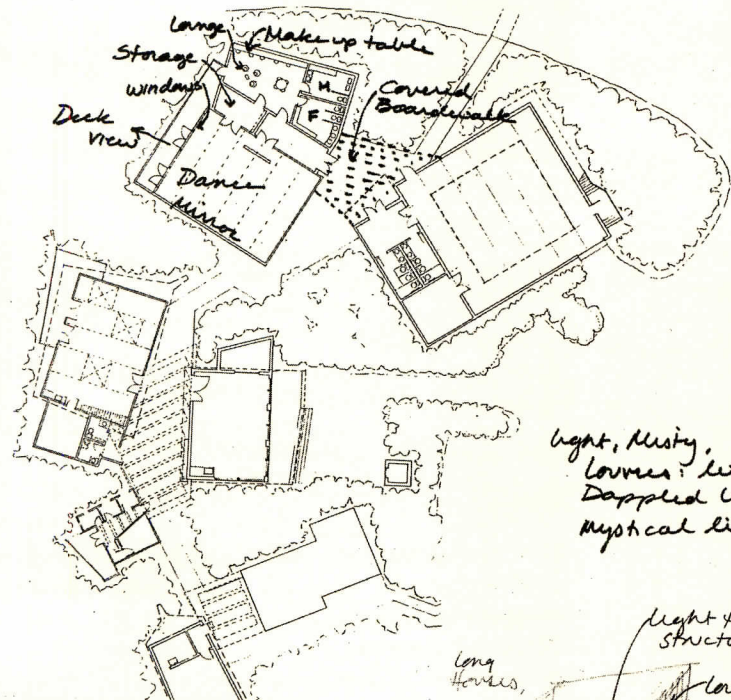 Lounge
Make up table
Storage
Windows
M.
Covered
Boardwalk
F
Deck
View
Dance
Mirror
Light, Misty,
Louvres:
Dappled
Mystical
Light
Structu
Long
Houses,